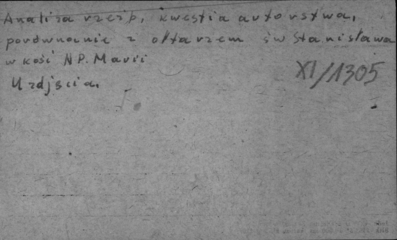 Analiza rzeźb, kwestia autorstwa,
porównanie z ołtarzem św Stanisława
w kość N.P. Marii
XI/1305
U zdjęcia.